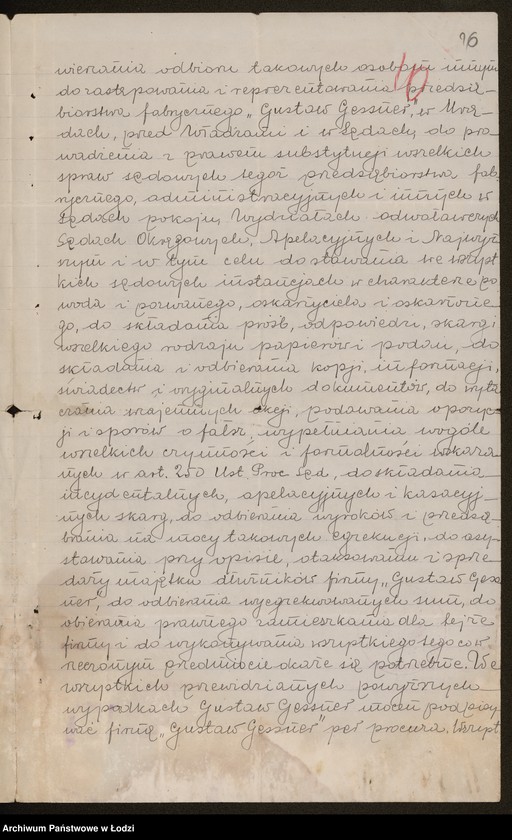 96
10
wierania odbioru takowych osobom innym
do zastępowania i reprezentowania przedsię-
biorstwa fabrycznego „Gustaw Gessner", w Urzę-
dach, przed Władzami i w Sądach, do pro-
wadzenia z prawem substytucji wszelkich
spraw sądowych tegoż przedsiębiorstwa fab-
rycznego, administracyjnych i innych w
Sądach pokoju, Wydziałach odwoławczych
Sądach Okręgowych, Apelacyjnych i Najwyż-
szym i w tym celu do stawania we wszyst-
kich sądowych instancjach w charakterze po
woda i pozwanego, oskarżyciela i oskarżone-
go, do składania próśb, odpowiedzi, skarg i
wszelkiego rodzaju papierów i podań, do
składania i odbierania kopji, informacji,
świadectw i oryginalnych dokumentów, do wyta
czania wzajemnych akcji, podawania opozyc
ji i sporów o fałsz, wypełniania wogóle
wszelkich czynności i formalności wskaza-
nych w art. 250 Ust. Proc. Sąd., do składania
incydentalnych, apelacyjnych i kasacyj-
nych skarg, do odbierania wyroków i przedsię-
brania na mocy takowych egzekucji, do asy-
stowania przy opisie, otaksowaniu i sprze-
daży majątku dłużników firmy „Gustaw Gess
ner", do odbierania wyegzekwowanych sum, do
obierania prawnego zamieszkania dla tejże
firmy i do wykonywania wszystkiego tego co w
rzeczonym przedmiocie okaże się potrzebne. We
wszystkich przewidzianych powyższych
wypadkach Gustaw Gessner mocen podpisy
wać firmę „Gustaw Gessner" per procura. Wszyst
Archiwum Państwowe w Łodzi